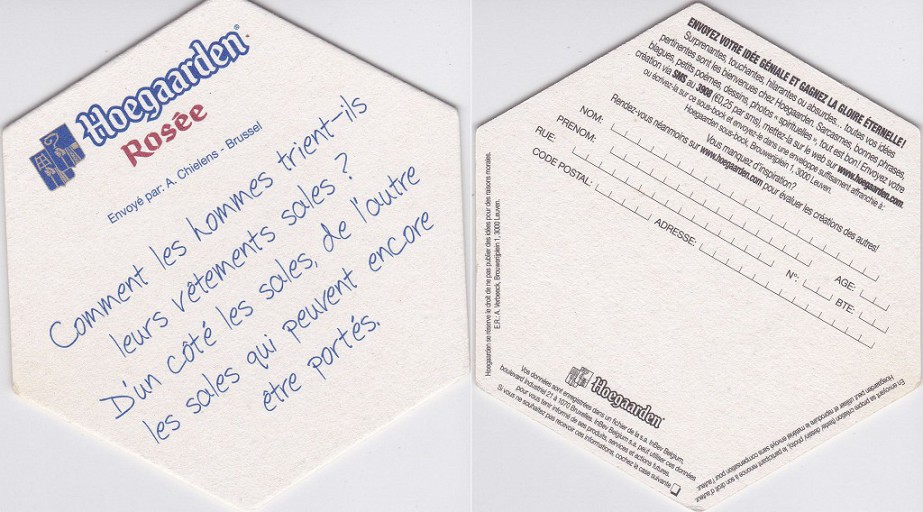 Hoegaarden®
Rosée
Envoyé par: A. Chielens - Brussel
Comment les hommes trient-ils
leurs vêtements sales ?
D'un côté les sales, de l'autre
les sales qui peuvent encore
être portés.
ENVOYEZ VOTRE IDÉE GÉNIALE ET GAGNEZ LA GLOIRE ÉTERNELLE!
Surprenantes, touchantes, hilarantes ou absurdes... toutes vos idées
pertinentes sont les bienvenues chez Hoegaarden. Sarcasmes, bonnes phrases,
blagues, petits poèmes, dessins, photos « spirituelles », tout est bon! Envoyez votre
création via SMS au 3908 (€0.25 par sms), mettez-la sur le web sur www.hoegaarden.com,
ou écrivez-la sur ce sous-bock et envoyez-le dans une enveloppe suffisamment affranchie à:
Hoegaarden sous-bock, Brouwerijplein 1, 3000 Leuven.
Vous manquez d'inspiration?
Rendez-vous néanmoins sur www.hoegaarden.com pour évaluer les créations des autres!
NOM:
PRENOM: AGE:
RUE: N°: BTE:
CODE POSTAL:
ADRESSE:
Hoegaarden se réserve le droit de ne pas publier des idées pour des raisons morales.
E.R.: A. Verbeeck, Brouwerijplein 1, 3000 Leuven.
Hoegaarden
Vos données sont enregistrées dans un fichier de la s.a. InBev Belgium,
boulevard Industriel 21 à 1070 Bruxelles. InBev Belgium s.a. peut utiliser ces données
pour vous tenir informé de ses produits, services et actions futures.
Si vous ne souhaitez pas recevoir ces informations, cochez la case suivante
En envoyant sa propre création (texte/ dessin/ photo), le participant renonce à son droit d'auteur.
Hoegaarden peut utiliser et reproduire le matériel envoyé sans compensation pour l'auteur.